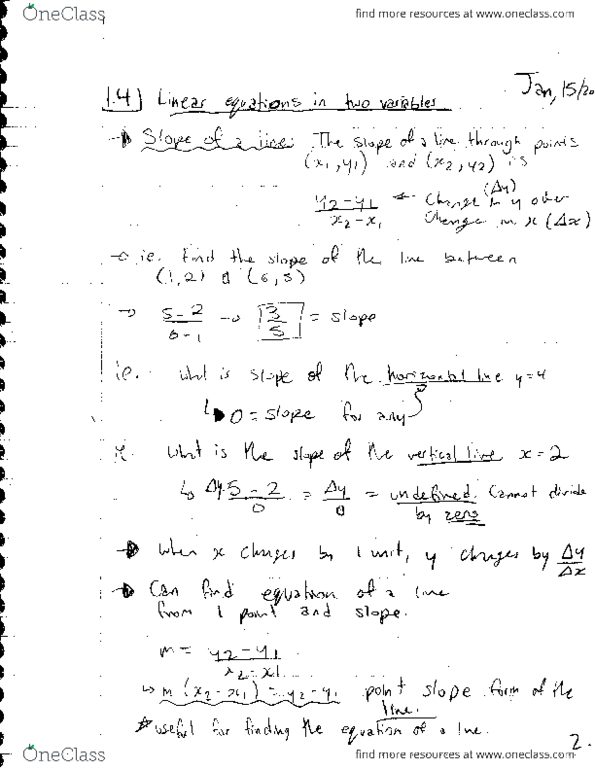 OneClass
find more resources at www.oneclass.com
Jan, 15/20
1.4) Linear equations in two variables
Slope of a line: The slope of a line through points
(x1, y1) and (x2, y2) is
y2-y1 / x2-x1 ← Change in y over (Δy)
Change in x (Δx)
→ ie. Find the slope of the line between
(1,2) (6,5)
→ 5-2 / 6-1 → 3/5 = slope
ie. What is slope of the horizontal line y=4
↳ 0 = slope for any
What is the slope of the vertical line x=2
↳ Δy 5-2 / 0 = Δy / 0 = undefined. Cannot divide
by zero
→ When x changes by 1 unit, y changes by Δy / Δx
→ Can find equation of a line
from 1 point and slope.
m = y2-y1 / x2-x1
↳ m (x2-x1) = y2-y1 point slope form of the
line.
useful for finding the equation of a line.
2.
OneClass
find more resources at www.oneclass.com